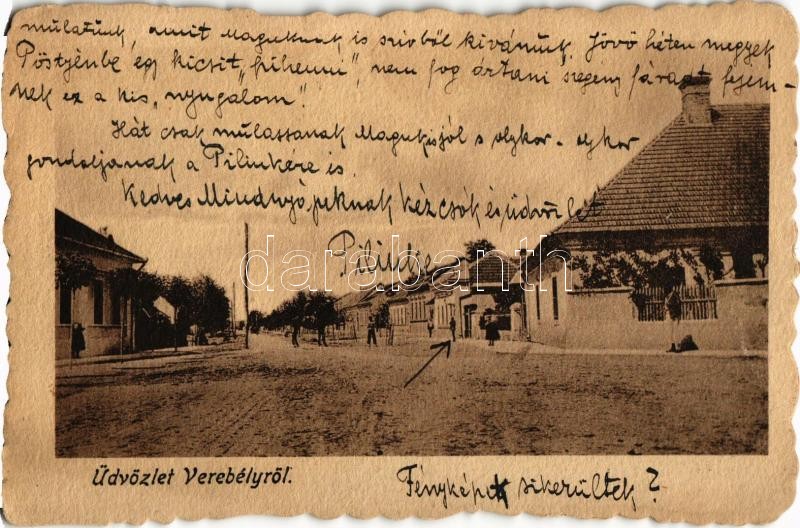 mulatunk, amit Maguknak is szivből kivánunk. Jövő héten megyek
Pöstyénbe egy kicsit "pihenni", nem fog ártani szegény fáradt fejem-
nek ez a kis "nyugalom".
Hát csak mulassanak Maguk is jól s olykor-olykor
gondoljanak a Pilinkére is.
Kedves Mindnyájuknak kézcsók és üdvözlet
darabanth
Üdvözlet Verebélyről.
Fényképek sikerültek?